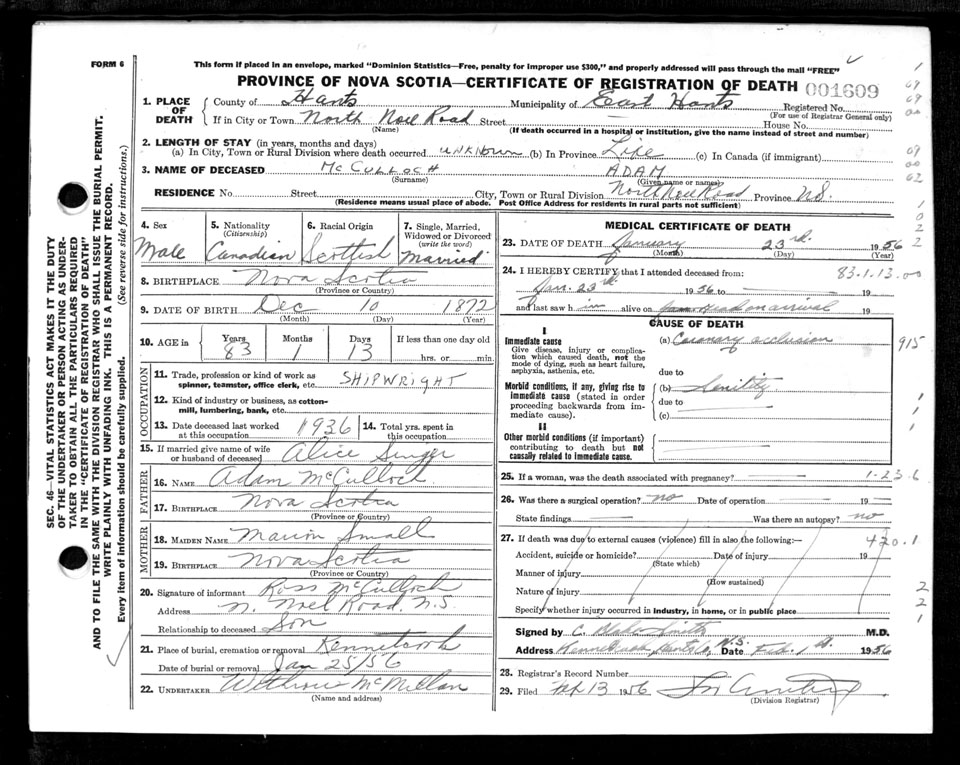 FORM 6
This form if placed in an envelope, marked "Dominion Statistics—Free, penalty for improper use $300," and properly addressed will pass through the mail "FREE"
PROVINCE OF NOVA SCOTIA—CERTIFICATE OF REGISTRATION OF DEATH 001609
1. PLACE OF DEATH
County of Hants Municipality of East Hants Registered No.
(For use of Registrar General only)
If in City or Town North Noel Road Street House No.
(Name) (If death occurred in a hospital or institution, give the name instead of street and number)
2. LENGTH OF STAY (in years, months and days)
(a) In City, Town or Rural Division where death occurred unknown (b) In Province Life (c) In Canada (if immigrant)
3. NAME OF DECEASED McCULLOCH ADAM
(Surname) (Given name or names)
RESIDENCE No. Street City, Town or Rural Division North Noel Road Province N.S.
(Residence means usual place of abode. Post Office Address for residents in rural parts not sufficient)
4. Sex Male
5. Nationality (Citizenship) Canadian
6. Racial Origin Scottish
7. Single, Married, Widowed or Divorced (write the word) Married
8. BIRTHPLACE Nova Scotia
(Province or Country)
9. DATE OF BIRTH Dec 10 1872
(Month) (Day) (Year)
10. AGE in Years 83 Months 1 Days 13 If less than one day old
hrs. or min.
OCCUPATION
11. Trade, profession or kind of work as spinner, teamster, office clerk, etc. SHIPWRIGHT
12. Kind of industry or business, as cotton-mill, lumbering, bank, etc.
13. Date deceased last worked at this occupation 1936
14. Total yrs. spent in this occupation
15. If married give name of wife or husband of deceased Alice Singer
FATHER
16. NAME Adam McCulloch
17. BIRTHPLACE Nova Scotia
(Province or Country)
MOTHER
18. MAIDEN NAME Marion Small
19. BIRTHPLACE Nova Scotia
(Province or Country)
20. Signature of informant Ross McCulloch
Address N. Noel Road, N.S.
Relationship to deceased Son
21. Place of burial, cremation or removal Kennetcook
Date of burial or removal Jan 25/56
22. UNDERTAKER Withrow McMillan
(Name and address)
MEDICAL CERTIFICATE OF DEATH
23. DATE OF DEATH January 23rd. 1956
(Month) (Day) (Year)
24. I HEREBY CERTIFY that I attended deceased from: 83.1.13.00
Jan. 23rd 1956 to 19
and last saw him alive on 19
CAUSE OF DEATH
I
Immediate cause
Give disease, injury or complication which caused death, not the mode of dying, such as heart failure, asphyxia, asthenia, etc.
(a) Coronary occlusion 915
due to
Morbid conditions, if any, giving rise to immediate cause (stated in order proceeding backwards from immediate cause).
(b) Senility
due to
(c)
II
Other morbid conditions (if important) contributing to death but not causally related to immediate cause.
25. If a woman, was the death associated with pregnancy? 1-23 6
26. Was there a surgical operation? no Date of operation 19
State findings Was there an autopsy? no
27. If death was due to external causes (violence) fill in also the following:— 420.1
Accident, suicide or homicide? Date of injury 19
(State which)
Manner of injury
(How sustained)
Nature of injury
Specify whether injury occurred in industry, in home, or in public place
Signed by C. M.D.
Address Kennetcook, Hants Co, N.S. Date Feb. 1st. 1956
28. Registrar's Record Number
29. Filed Feb 13 1956
(Division Registrar)
SEC. 46—VITAL STATISTICS ACT MAKES IT THE DUTY
OF THE UNDERTAKER OR PERSON ACTING AS UNDER-
TAKER TO OBTAIN ALL THE PARTICULARS REQUIRED
IN THE "CERTIFICATE OF REGISTRATION OF DEATH"
AND TO FILE THE SAME WITH THE DIVISION REGISTRAR WHO SHALL ISSUE THE BURIAL PERMIT.
WRITE PLAINLY WITH UNFADING INK. THIS IS A PERMANENT RECORD.
Every item of information should be carefully supplied. (See reverse side for instructions.)